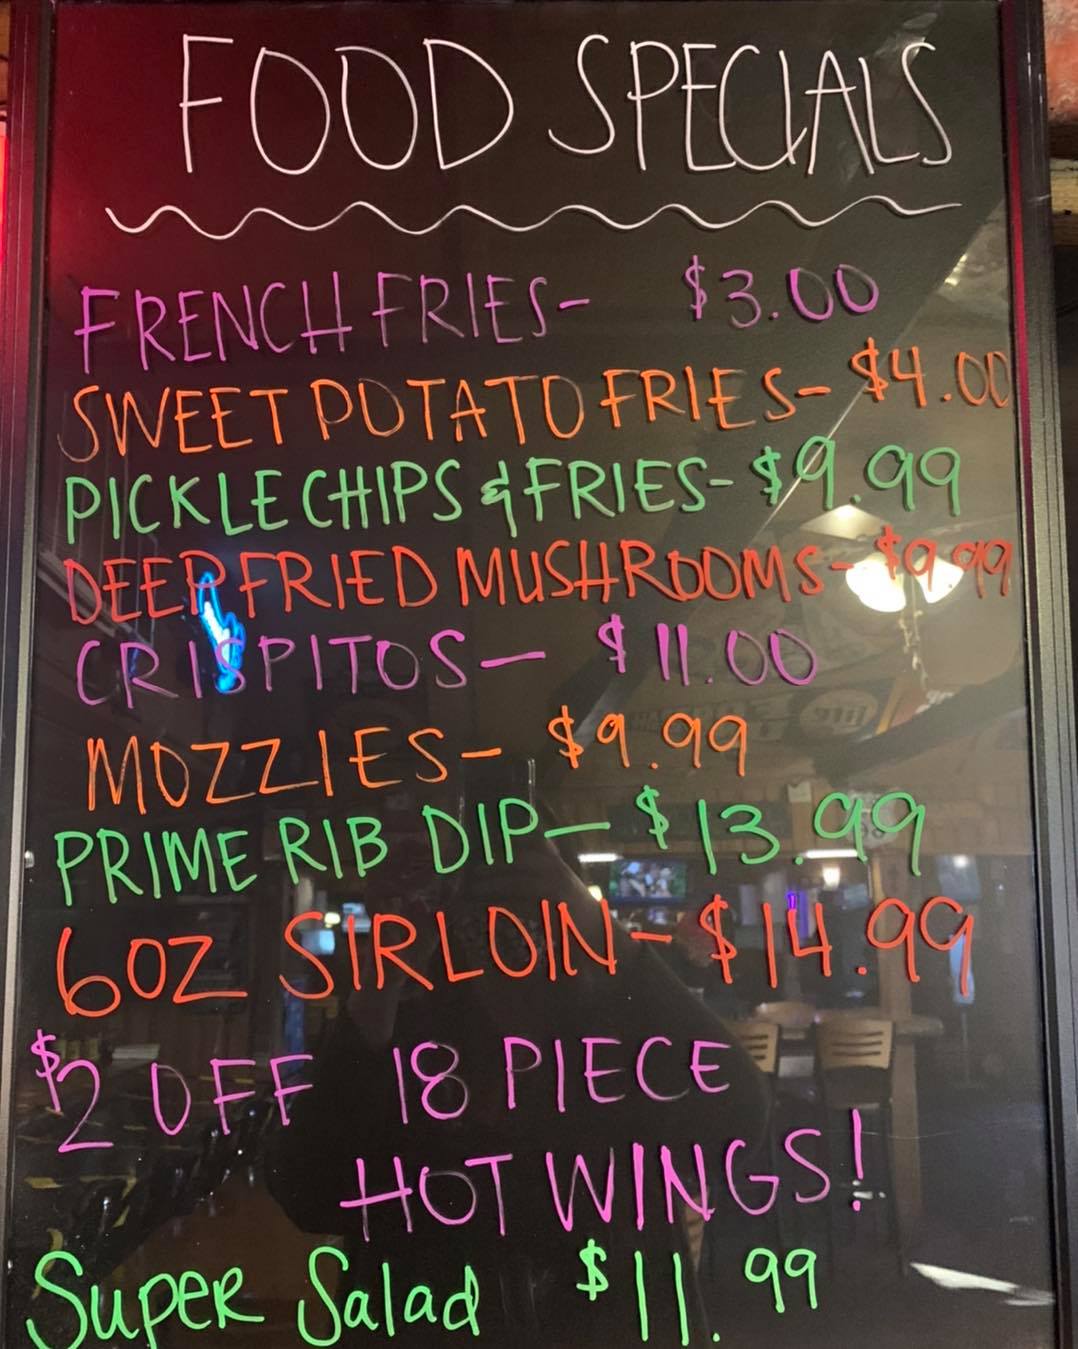 FOOD SPECIALS
FRENCH FRIES- $3.00
SWEET POTATO FRIES- $4.00
PICKLE CHIPS & FRIES- $9.99
DEEP FRIED MUSHROOMS- $9.99
CRISPITOS- $11.00
MOZZIES- $9.99
PRIME RIB DIP- $13.99
6OZ SIRLOIN- $14.99
$2 OFF 18 PIECE
HOT WINGS!
SUPER Salad $11.99